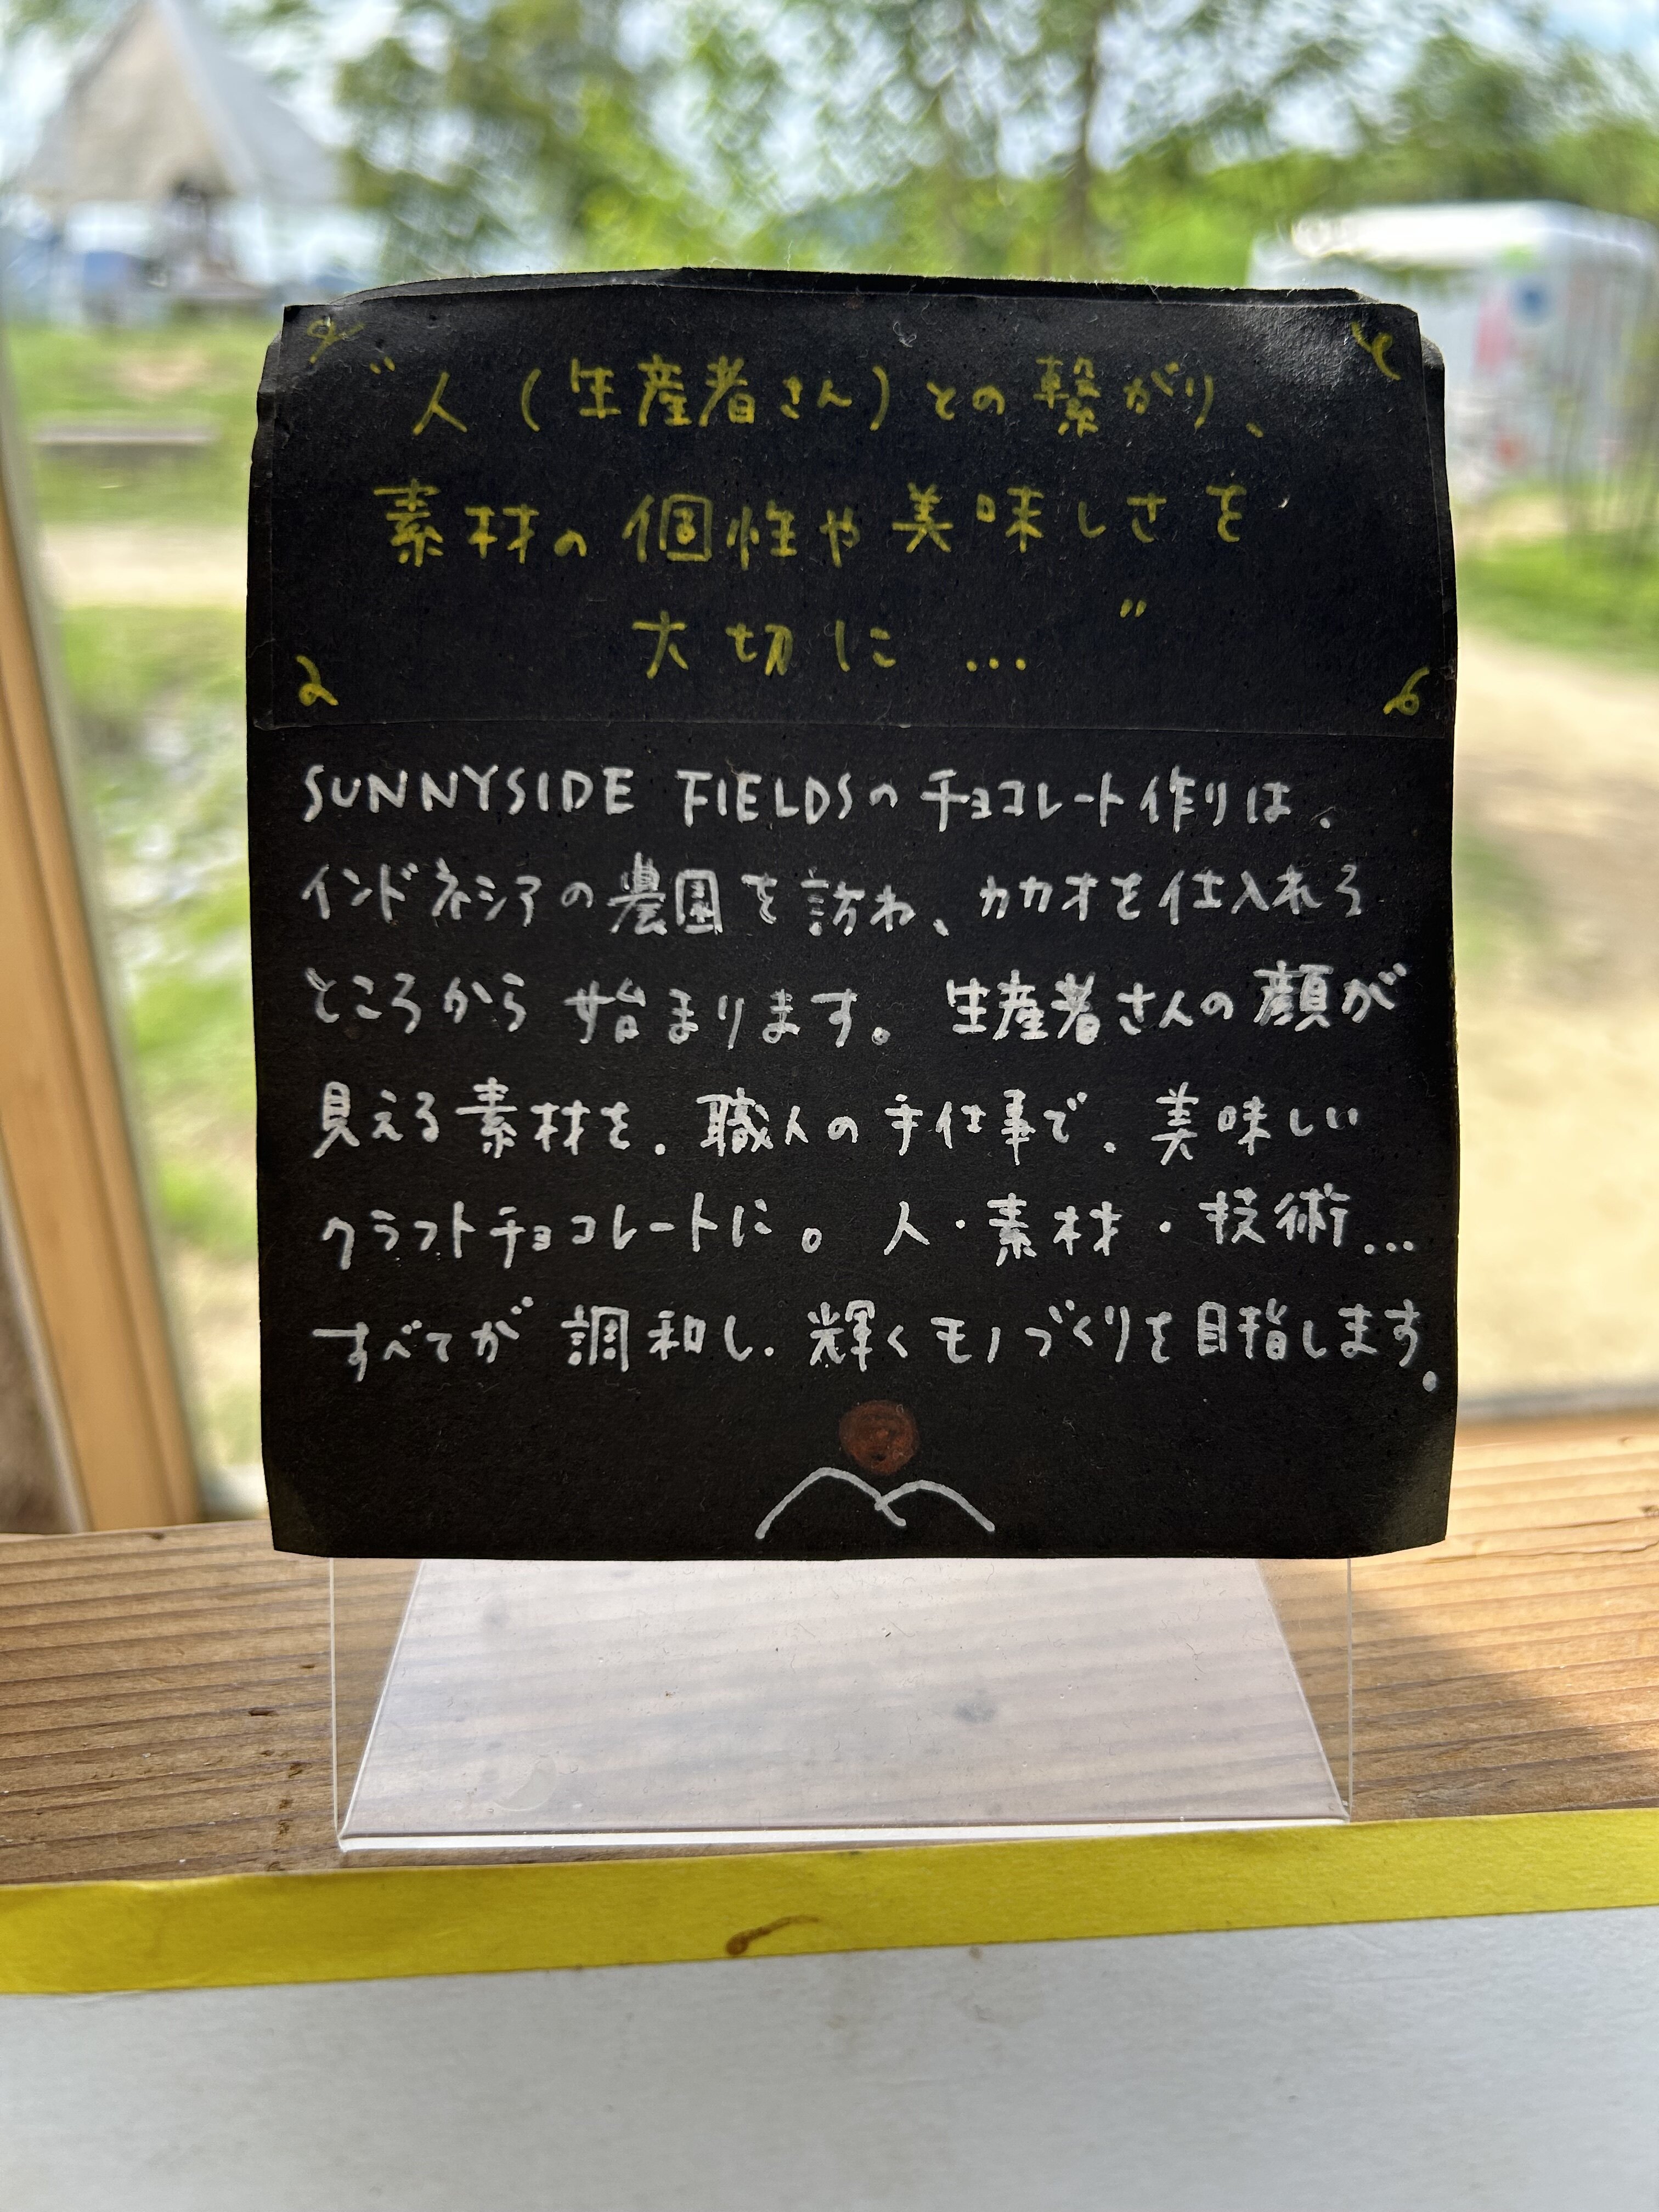 〝人(生産者さん)との繋がり、
素材の個性や美味しさを
大切に…〟
SUNNYSIDE FIELDSのチョコレート作りは、
インドネシアの農園を訪れ、カカオを仕入れる
ところから始まります。生産者さんの顔が
見える素材を、職人の手仕事で、美味しい
クラフトチョコレートに。人・素材・技術…
すべてが調和し、輝くモノづくりを目指します。